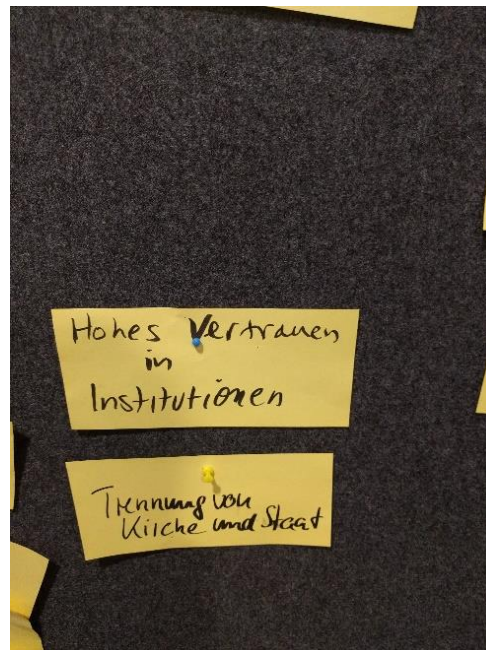 Hohes Vertrauen
in
Institutionen
Trennung von
Kirche und Staat